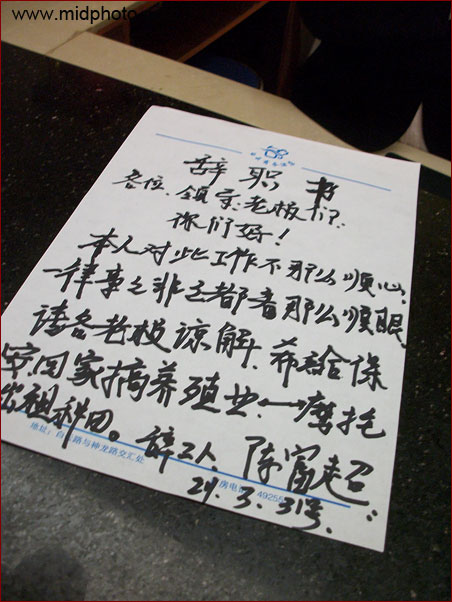 www.midphoto
辞职书
各位、领导老板们?
你们好!
本人对此工作不那么顺心、
一律事之非之都看那么顺眼
请各老板谅解、希给保
安回家搞养殖业一摩托
出租秋田。辞工人陈富超
地址:白 路与神龙路交汇处
房电 49255
29.3.31号.